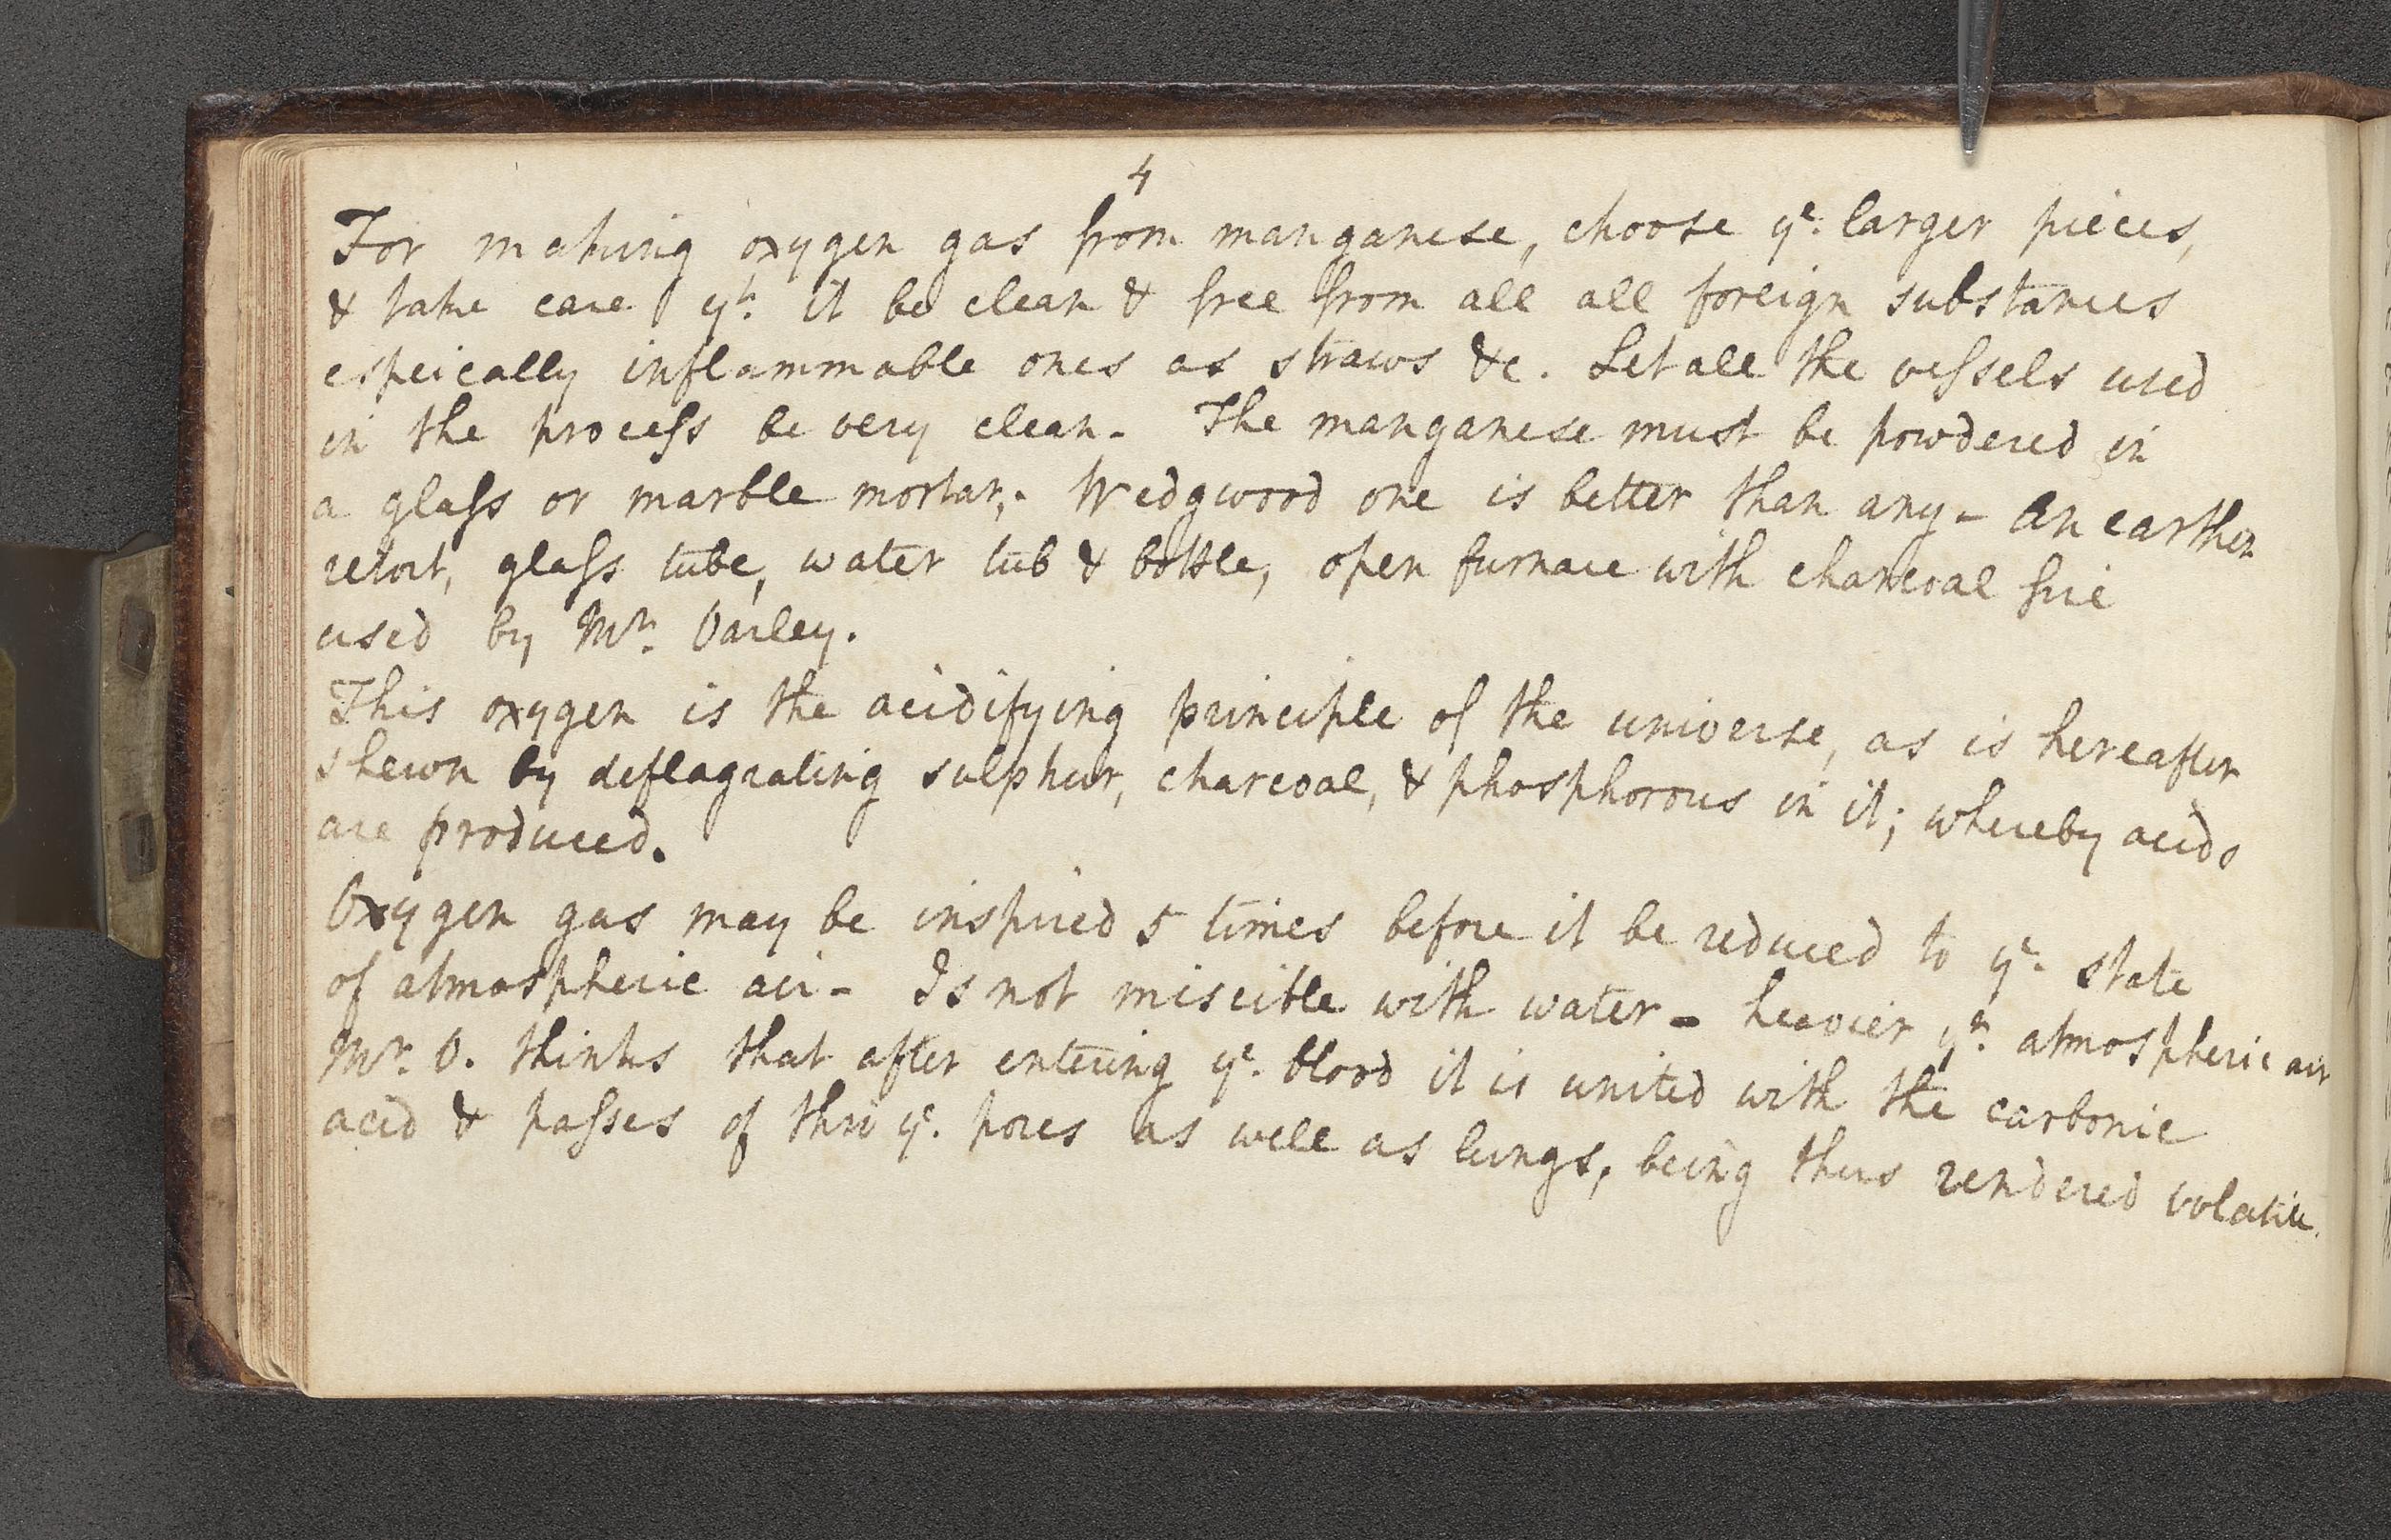 4
For making oxygen gas from manganese, choose ye. larger pieces,
& take care yt. it be clean & free from all all foreign substances
espeically inflammable ones as straws &c. Let all the veſsels used
in the proceſs be very clean - The manganese must be powdered in
a glaſs or marble mortar, - Wedgwood one is better than any - An earthen
retort, glaſs tube, water tub & bottle, open furnace with charcoal fire
used by Mr. Varley.
This oxygen is the acidifying principle of the universe, as is hereafter
shewn by deflagrating sulphur, charcoal, & phosphorous in it; whereby acids
are produced.
Oxygen gas may be inspired 5 times before it be reduced to ye. state
of atmospheric air - Is not miscible with water - heavier yn. atmospheric air
Mr. V. thinks that after entering ye. blood it is united with the carbonic
acid & paſses of thro ye. pores as well as lungs, being thus rendered volatile.